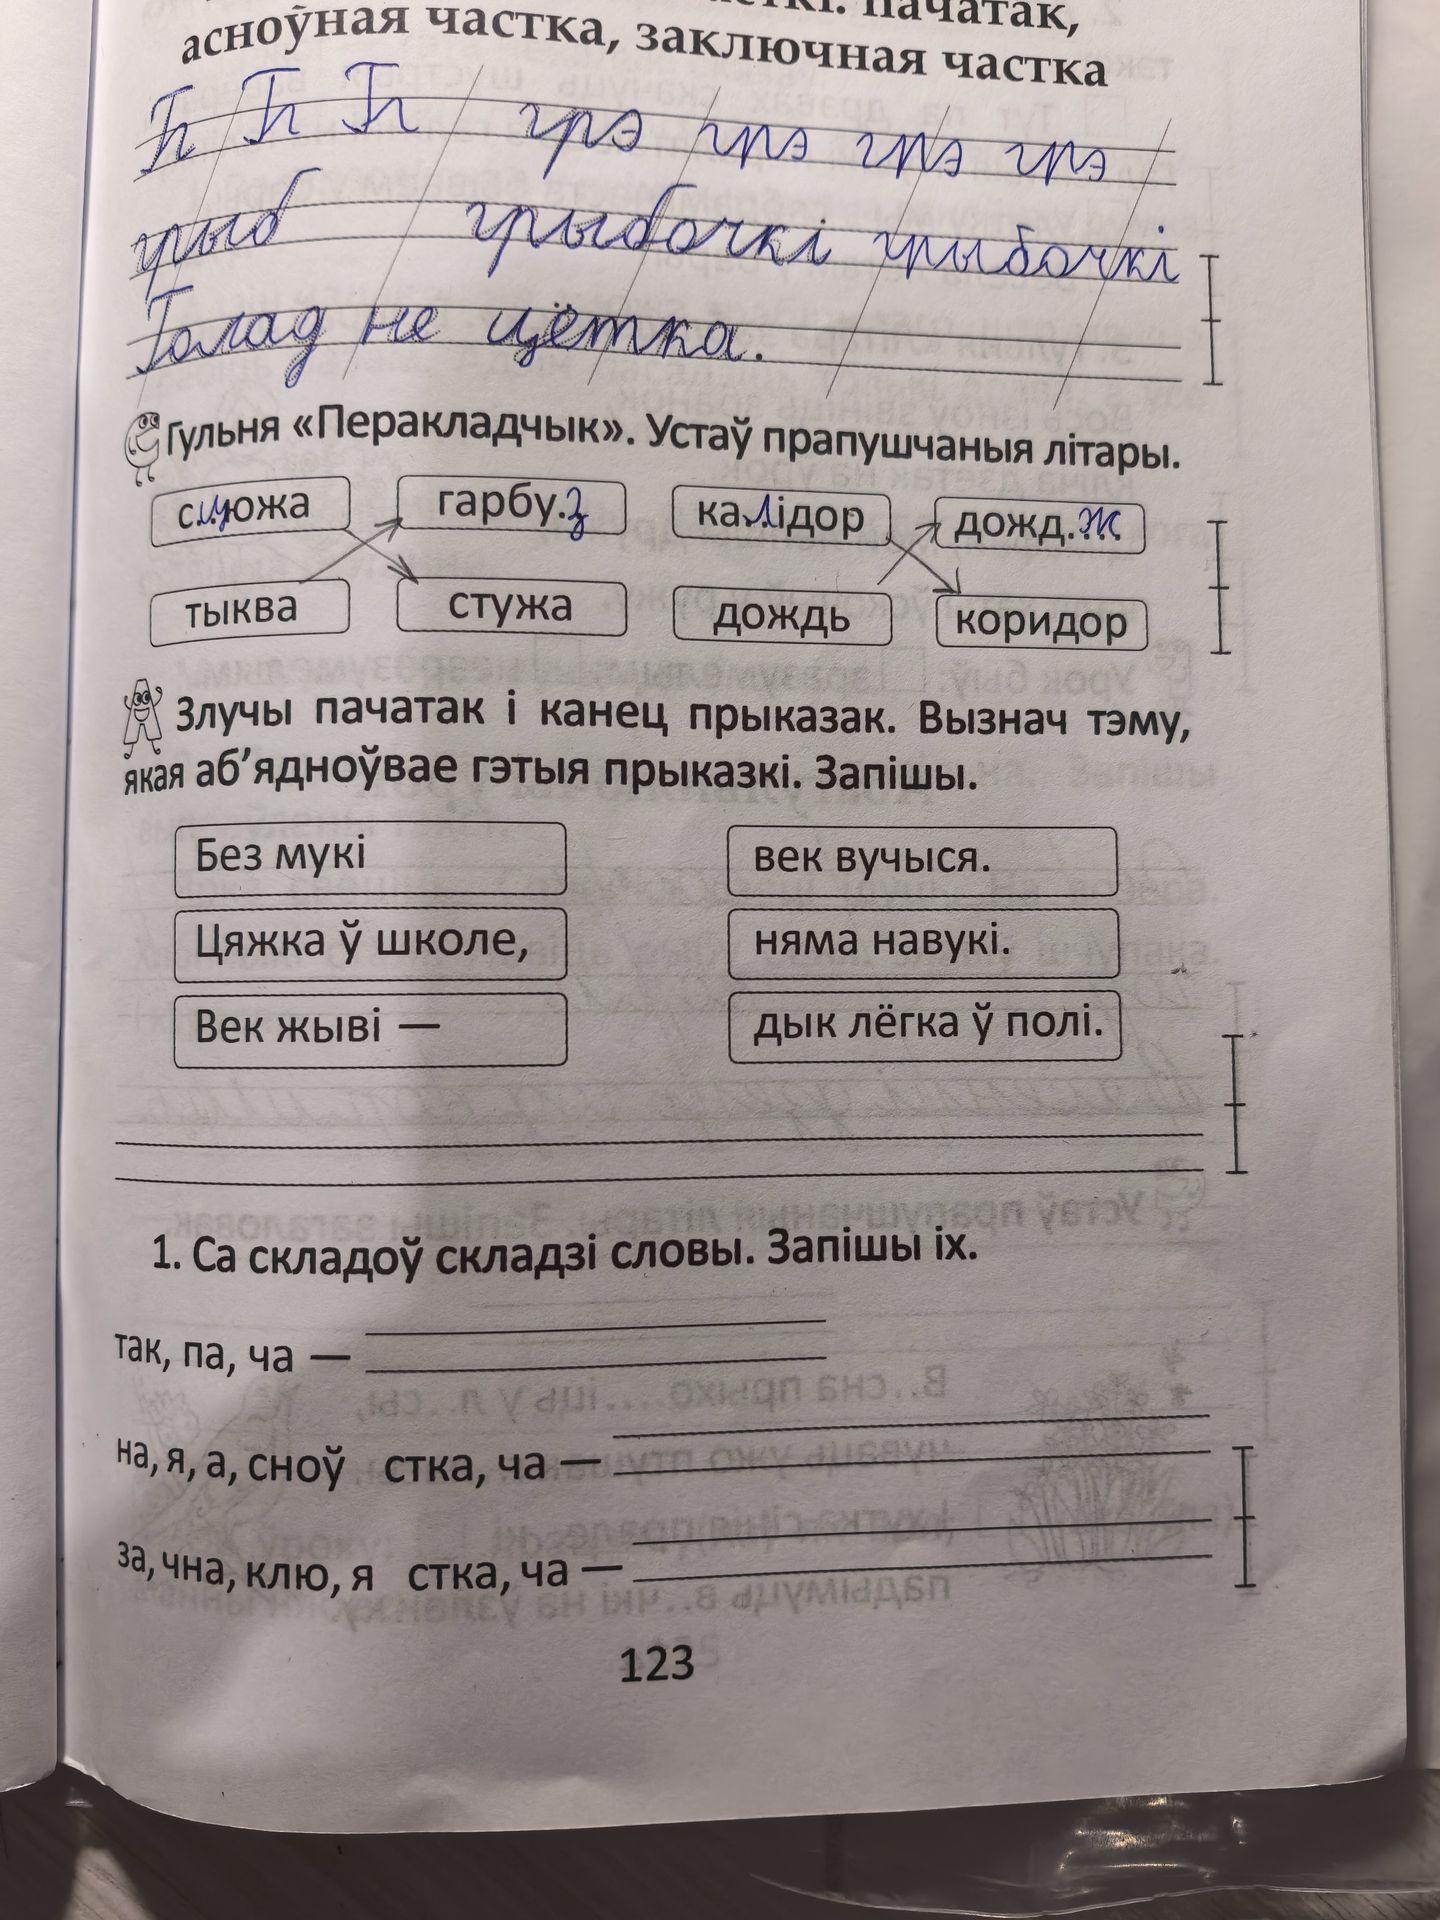 пачатак,
асноўная частка, заключная частка
Гр Гр Гр грэ грэ грэ грэ
грыб грыбочкі грыбочкі
Голад не цётка.
Гульня «Перакладчык». Устаў прапушчаныя літары.
сцюжа гарбу.з калідор дожд.ж
тыква стужа дождь коридор
Злучы пачатак і канец прыказак. Вызнач тэму,
якая аб’ядноўвае гэтыя прыказкі. Запішы.
Без мукі век вучыся.
Цяжка ў школе, няма навукі.
Век жыві — дык лёгка ў полі.
1. Са складоў складзі словы. Запішы іх.
так, па, ча —
на, я, а, сноў стка, ча —
за, чна, клю, я стка, ча —
123